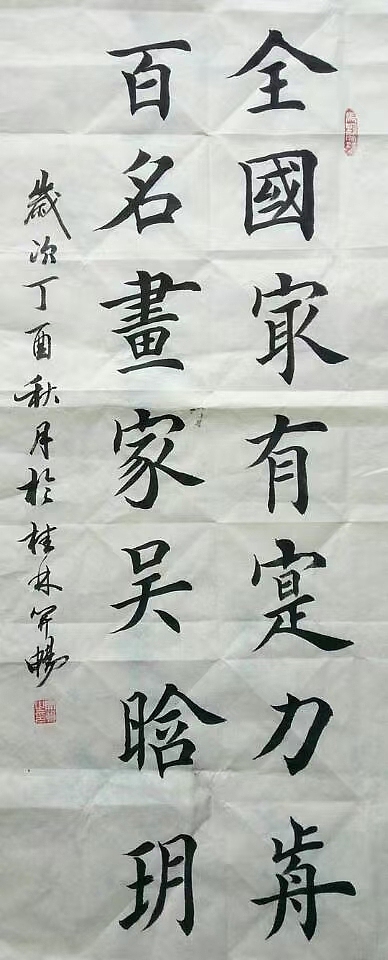 全國㝡有寔力歬
百名畫家吴晗玥
歲次丁酉秋月於桂林